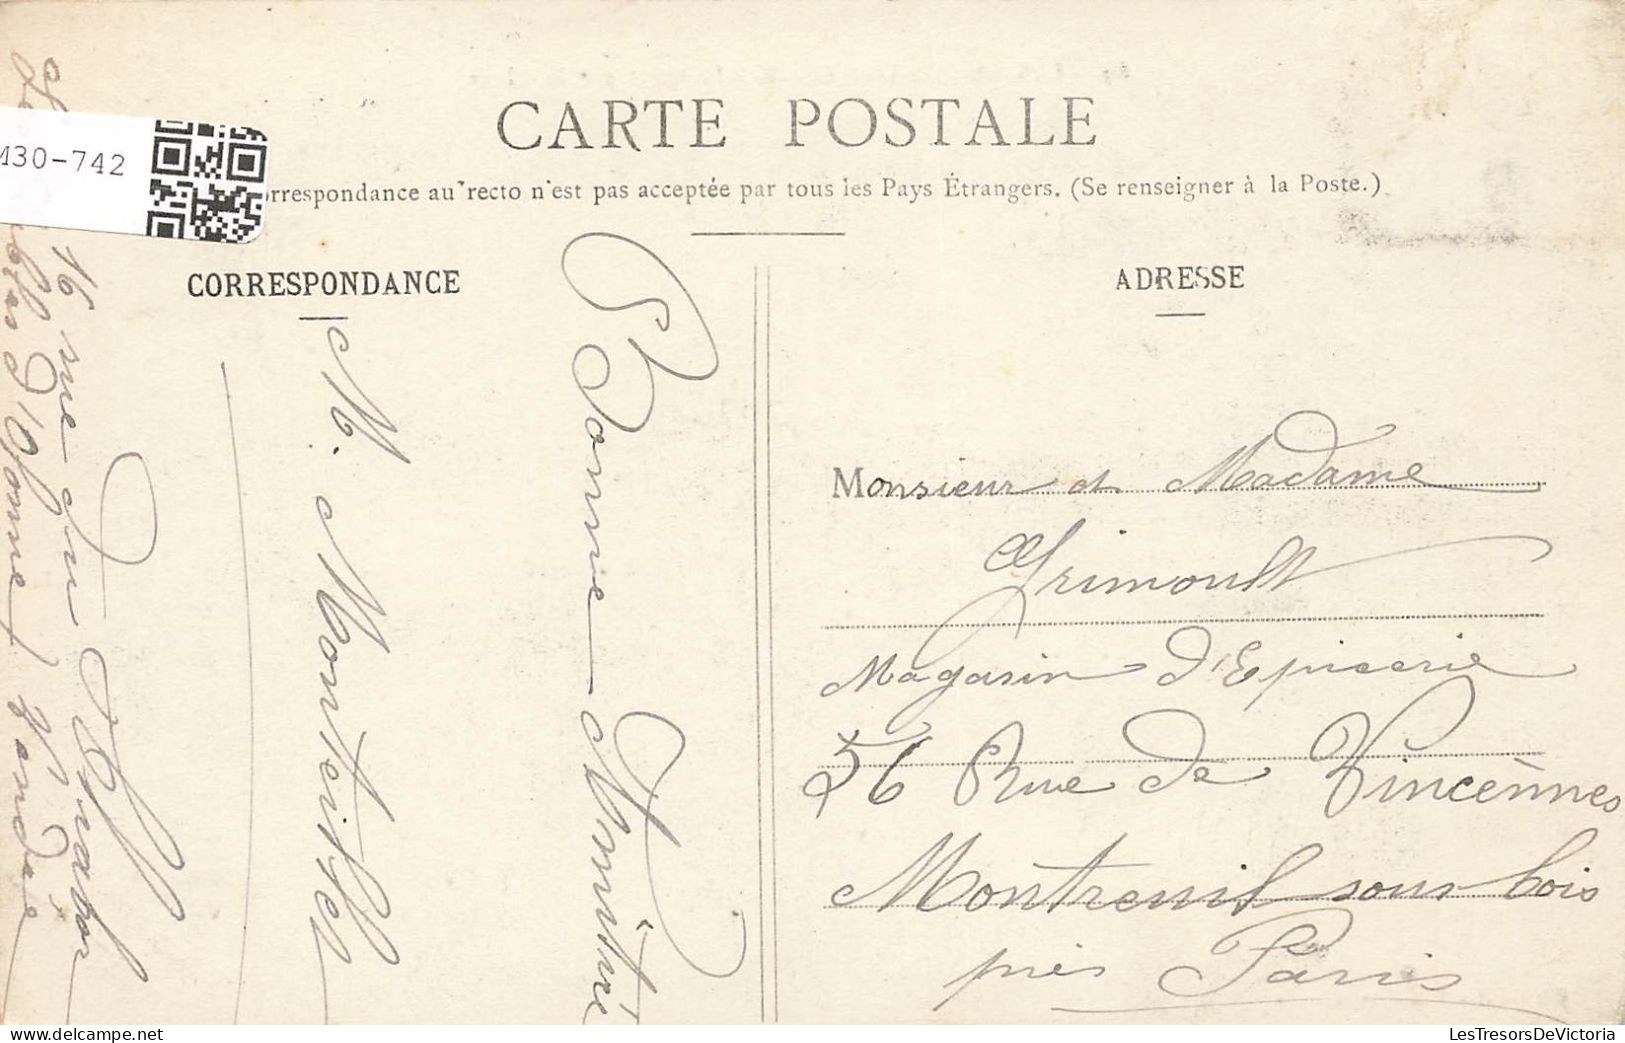 CARTE POSTALE
M30-742
orrespondance au recto n'est pas acceptée par tous les Pays Étrangers. (Se renseigner à la Poste.)
CORRESPONDANCE
ADRESSE
Bonne
M.
16 rue du
Les Sables d'Olonne) Vendée
Monsieur et Madame
Grimoult
Magasin d'Epicerie
56 Rue de Vincennes
Montreuil sous bois
près Paris
LesTresorsDeVictoria